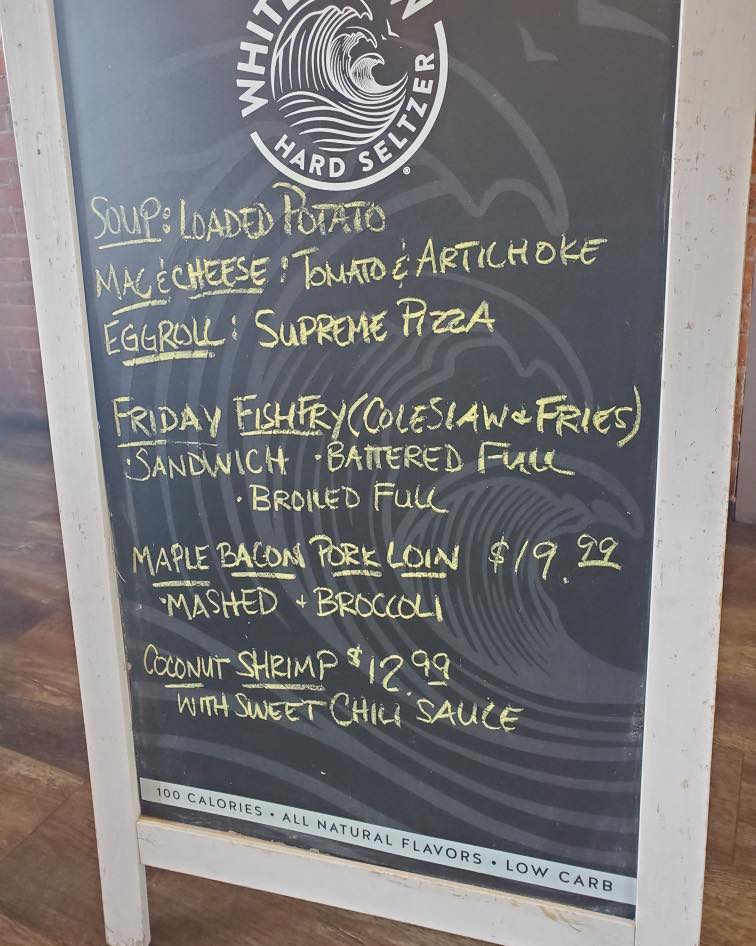 WHITE
HARD SELTZER
®
SOUP: LOADED POTATO
MAC & CHEESE: TOMATO & ARTICHOKE
EGGROLL: SUPREME PIZZA
FRIDAY FISH FRY (COLESLAW & FRIES)
·SANDWICH ·BATTERED FULL
·BROILED FULL
MAPLE BACON PORK LOIN $19.99
·MASHED + BROCCOLI
COCONUT SHRIMP $12.99
WITH SWEET CHILI SAUCE
100 CALORIES • ALL NATURAL FLAVORS • LOW CARB